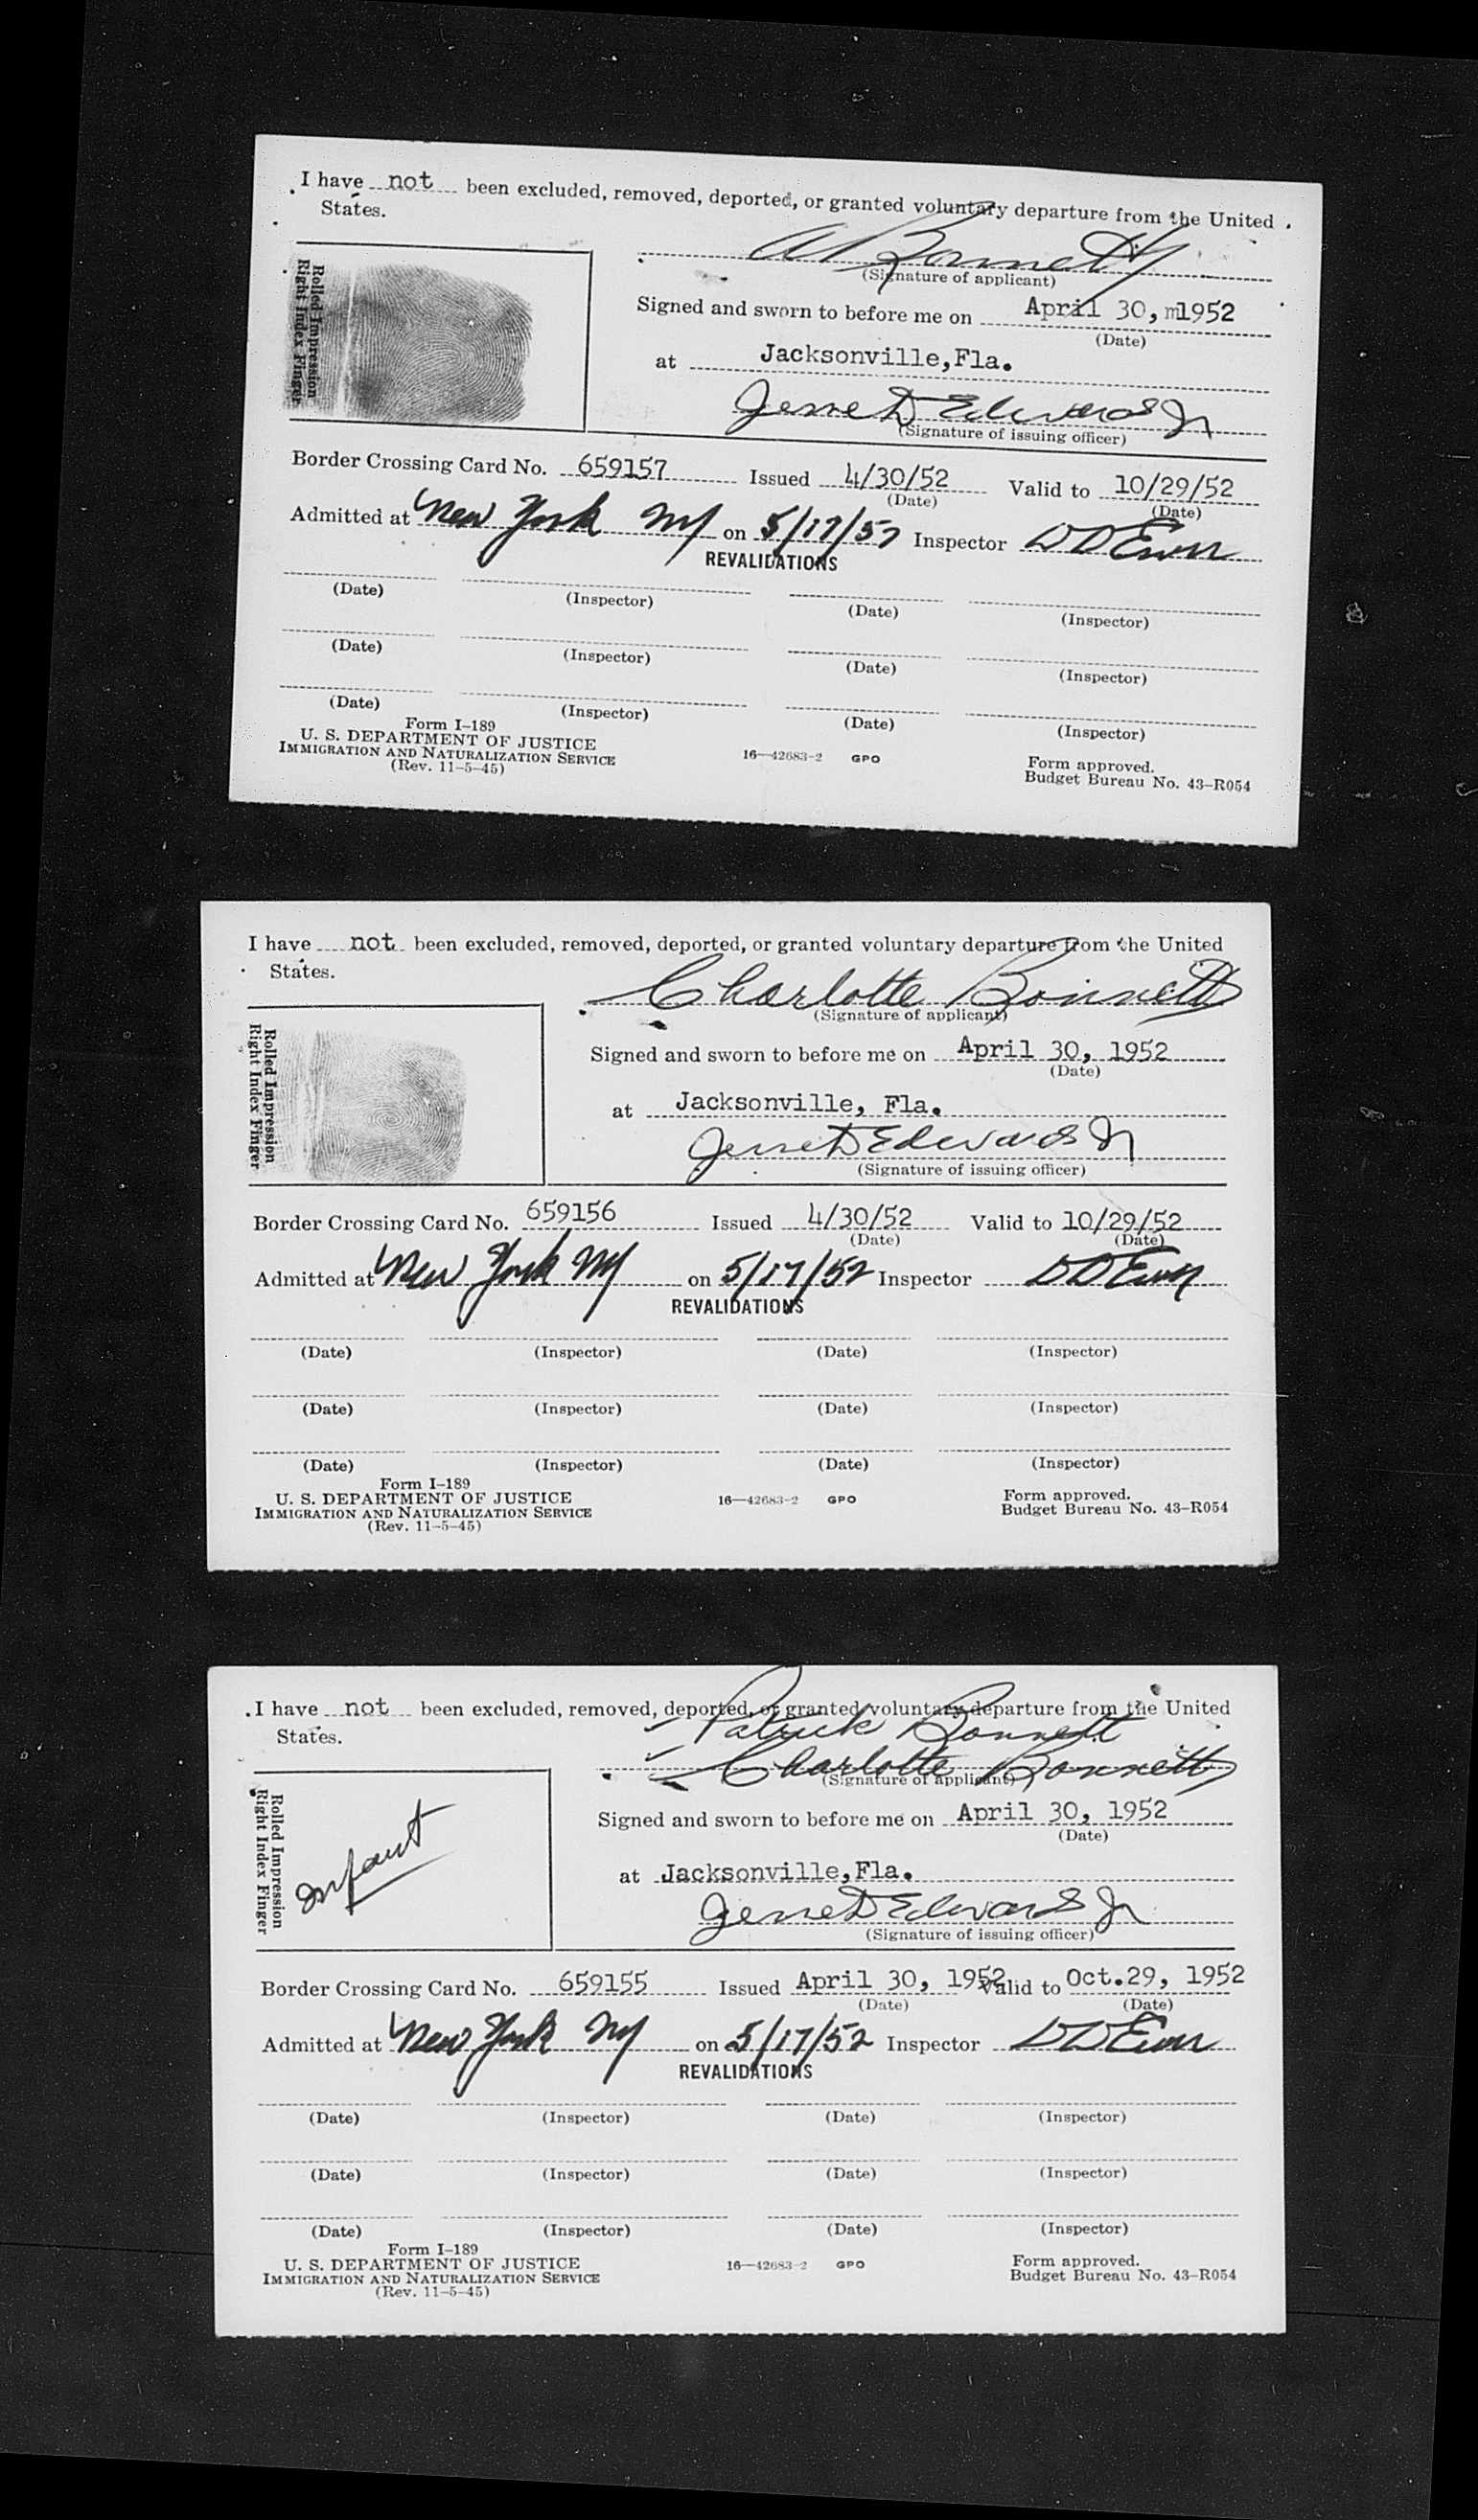 I have not been excluded, removed, deported, or granted voluntary departure from the United
States.
A Bonnett
(Signature of applicant)
Signed and sworn to before me on April 30, m1952
(Date)
at Jacksonville,Fla.
Jesse D Edwards Jr
(Signature of issuing officer)
Rolled Impression
Right Index Finger
Border Crossing Card No. 659157 Issued 4/30/52 Valid to 10/29/52
(Date) (Date)
Admitted at New York NY on 5/17/52 Inspector
REVALIDATIONS
(Date) (Inspector) (Date) (Inspector)
(Date) (Inspector) (Date) (Inspector)
(Date) (Inspector) (Date) (Inspector)
Form I-189
U. S. DEPARTMENT OF JUSTICE
IMMIGRATION AND NATURALIZATION SERVICE
(Rev. 11-5-45)
16—42683-2 GPO
Form approved.
Budget Bureau No. 43-R054
I have not been excluded, removed, deported, or granted voluntary departure from the United
States.
Charlotte Bonnett
(Signature of applicant)
Signed and sworn to before me on April 30, 1952
(Date)
at Jacksonville, Fla.
Jesse D Edwards Jr
(Signature of issuing officer)
Rolled Impression
Right Index Finger
Border Crossing Card No. 659156 Issued 4/30/52 Valid to 10/29/52
(Date) (Date)
Admitted at New York NY on 5/17/52 Inspector
REVALIDATIONS
(Date) (Inspector) (Date) (Inspector)
(Date) (Inspector) (Date) (Inspector)
(Date) (Inspector) (Date) (Inspector)
Form I-189
U. S. DEPARTMENT OF JUSTICE
IMMIGRATION AND NATURALIZATION SERVICE
(Rev. 11-5-45)
16—42683-2 GPO
Form approved.
Budget Bureau No. 43-R054
I have not been excluded, removed, deported, or granted voluntary departure from the United
States.
Patrick Bonnett
Charlotte Bonnett
(Signature of applicant)
Signed and sworn to before me on April 30, 1952
(Date)
at Jacksonville,Fla.
Jesse D Edwards Jr
(Signature of issuing officer)
Rolled Impression
Right Index Finger
Infant
Border Crossing Card No. 659155 Issued April 30, 1952 Valid to Oct.29, 1952
(Date) (Date)
Admitted at New York NY on 5/17/52 Inspector
REVALIDATIONS
(Date) (Inspector) (Date) (Inspector)
(Date) (Inspector) (Date) (Inspector)
(Date) (Inspector) (Date) (Inspector)
Form I-189
U. S. DEPARTMENT OF JUSTICE
IMMIGRATION AND NATURALIZATION SERVICE
(Rev. 11-5-45)
16—42683-2 GPO
Form approved.
Budget Bureau No. 43-R054